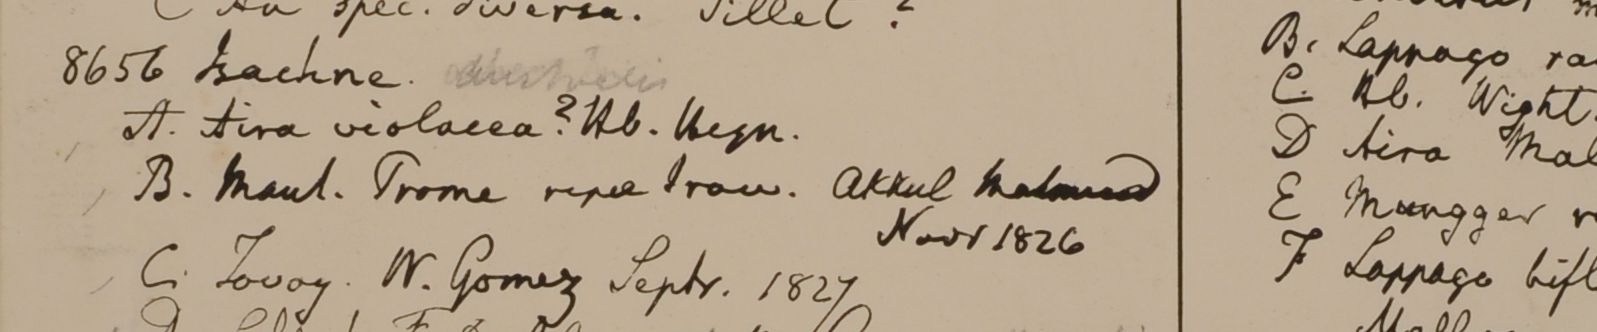 C An spec. diversa. Tillet?
8656 Isachne.
A. Aira violacea? Hb. Heyn.
B. Maul. Prome ripae Iraw. Akkul
Novr 1826
C. Tavoy. W. Gomez Septr. 1827
B. Lappago ra
C. Hb. Wight.
D Aira Mal
E Mungger r
F Lappago bifl